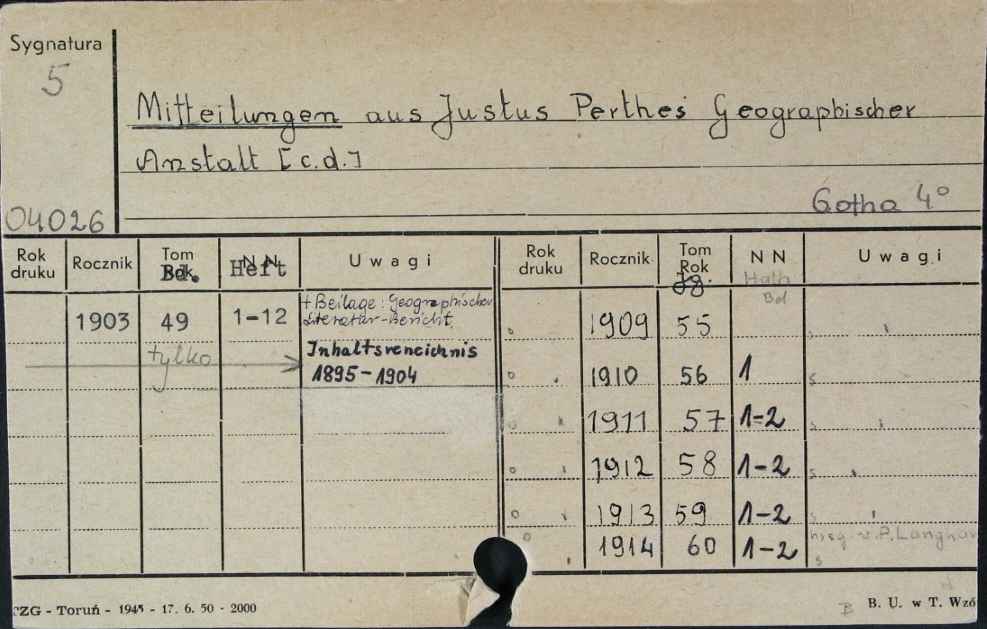 Sygnatura
5
04026
Mitteilungen aus Justus Perthes Geographischer
Anstalt [c.d.]
Gotha 4°
Rok druku Rocznik Tom Bd. Heft Uwagi
1903 49 1-12 + Beilage: Geographischer
Literatur-Bericht.
tylko Inhaltsverzeichnis
1895-1904
Rok druku Rocznik Tom Rok Jg. N N Halb Bd Uwagi
1909 55
1910 56 1
1911 57 1-2
1912 58 1-2
1913 59 1-2
1914 60 1-2 hrsg. v. P. Langhan
CZG - Toruń - 1945 - 17. 6. 50 - 2000
B. U. w T. Wzó